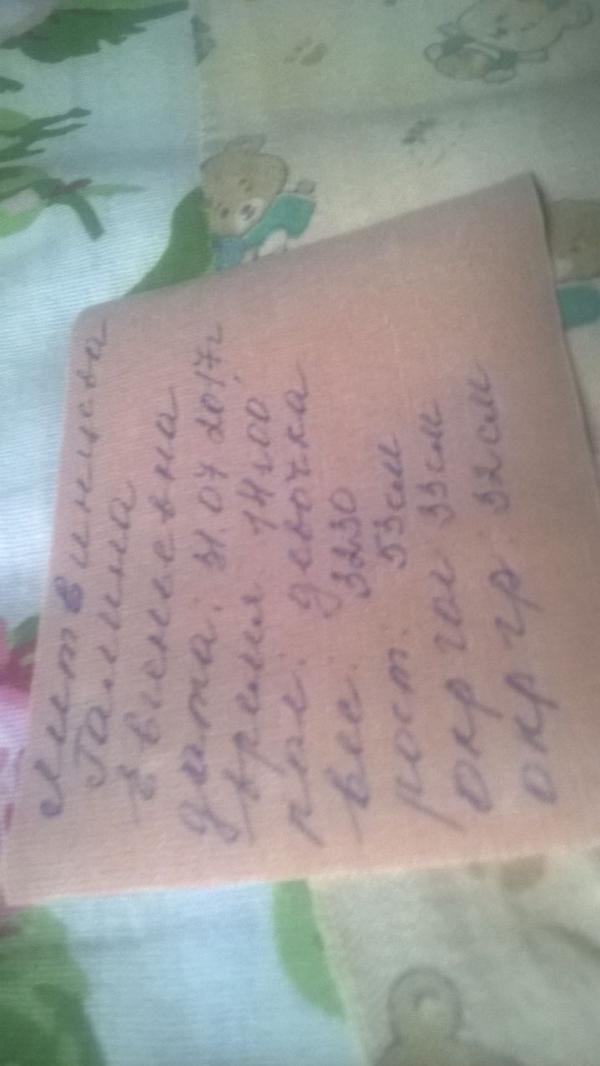 Литвинцева
Галина
Евгеньевна
дата. 31.07 2017г
время. 14.00
пол. девочка
вес. 3230
рост. 53 см
окр гол 33 см
окр гр. 32 см